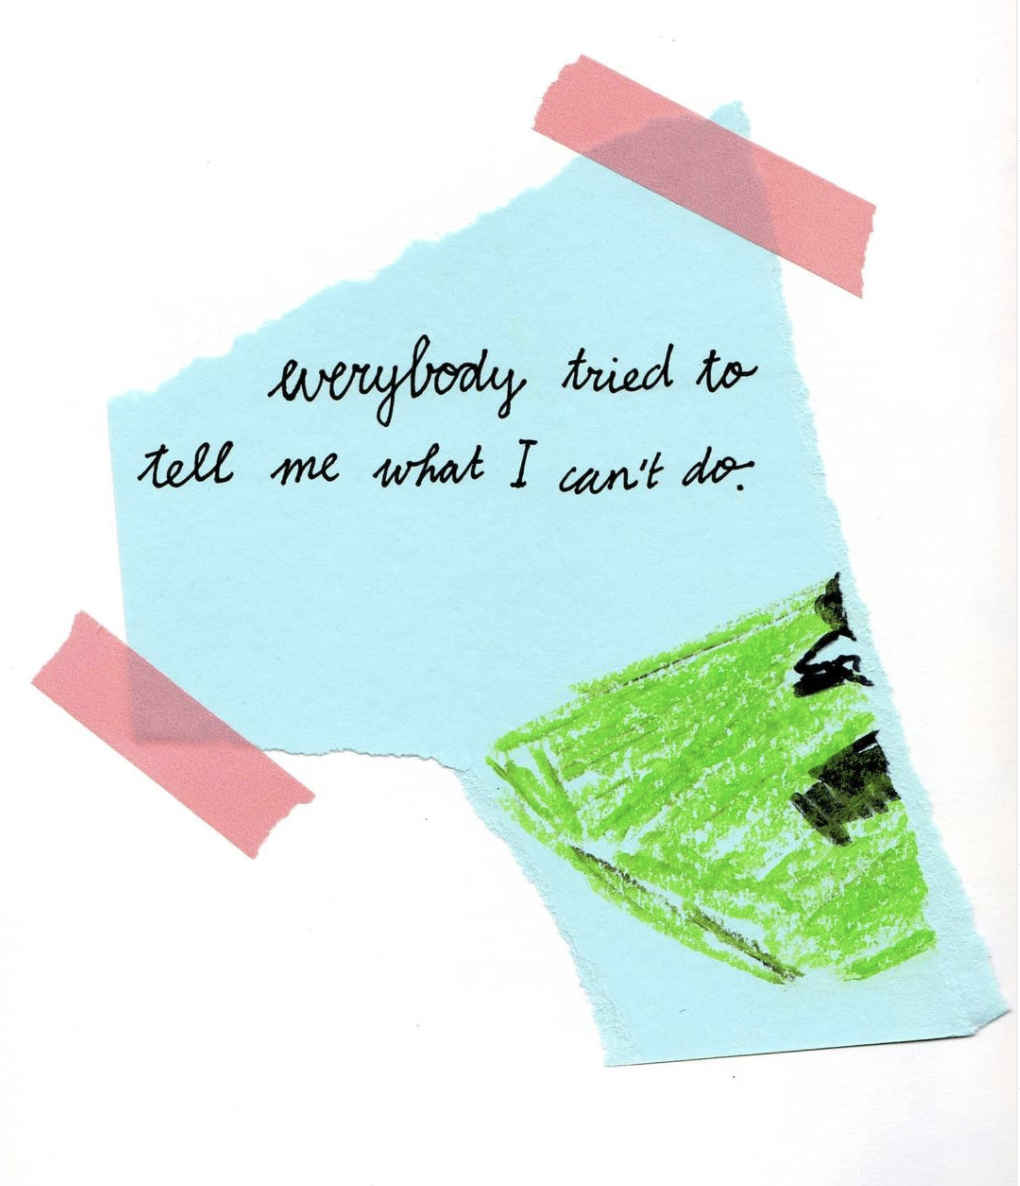 everybody tried to
tell me what I can't do.